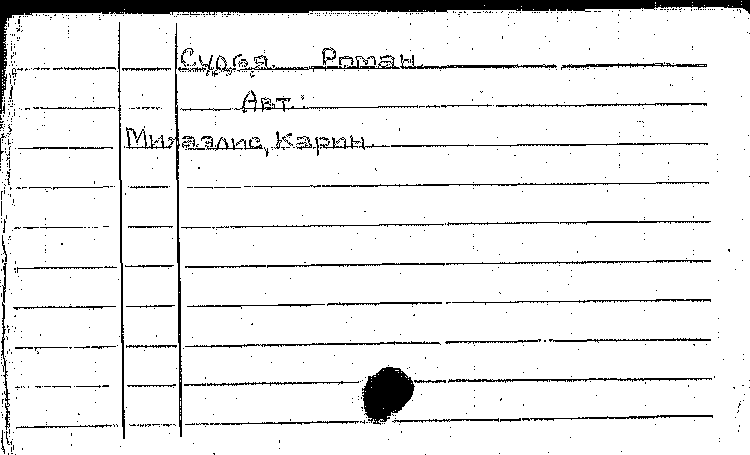 Судьбя. Роман.
Авт.:
Михаэлис, Карин.